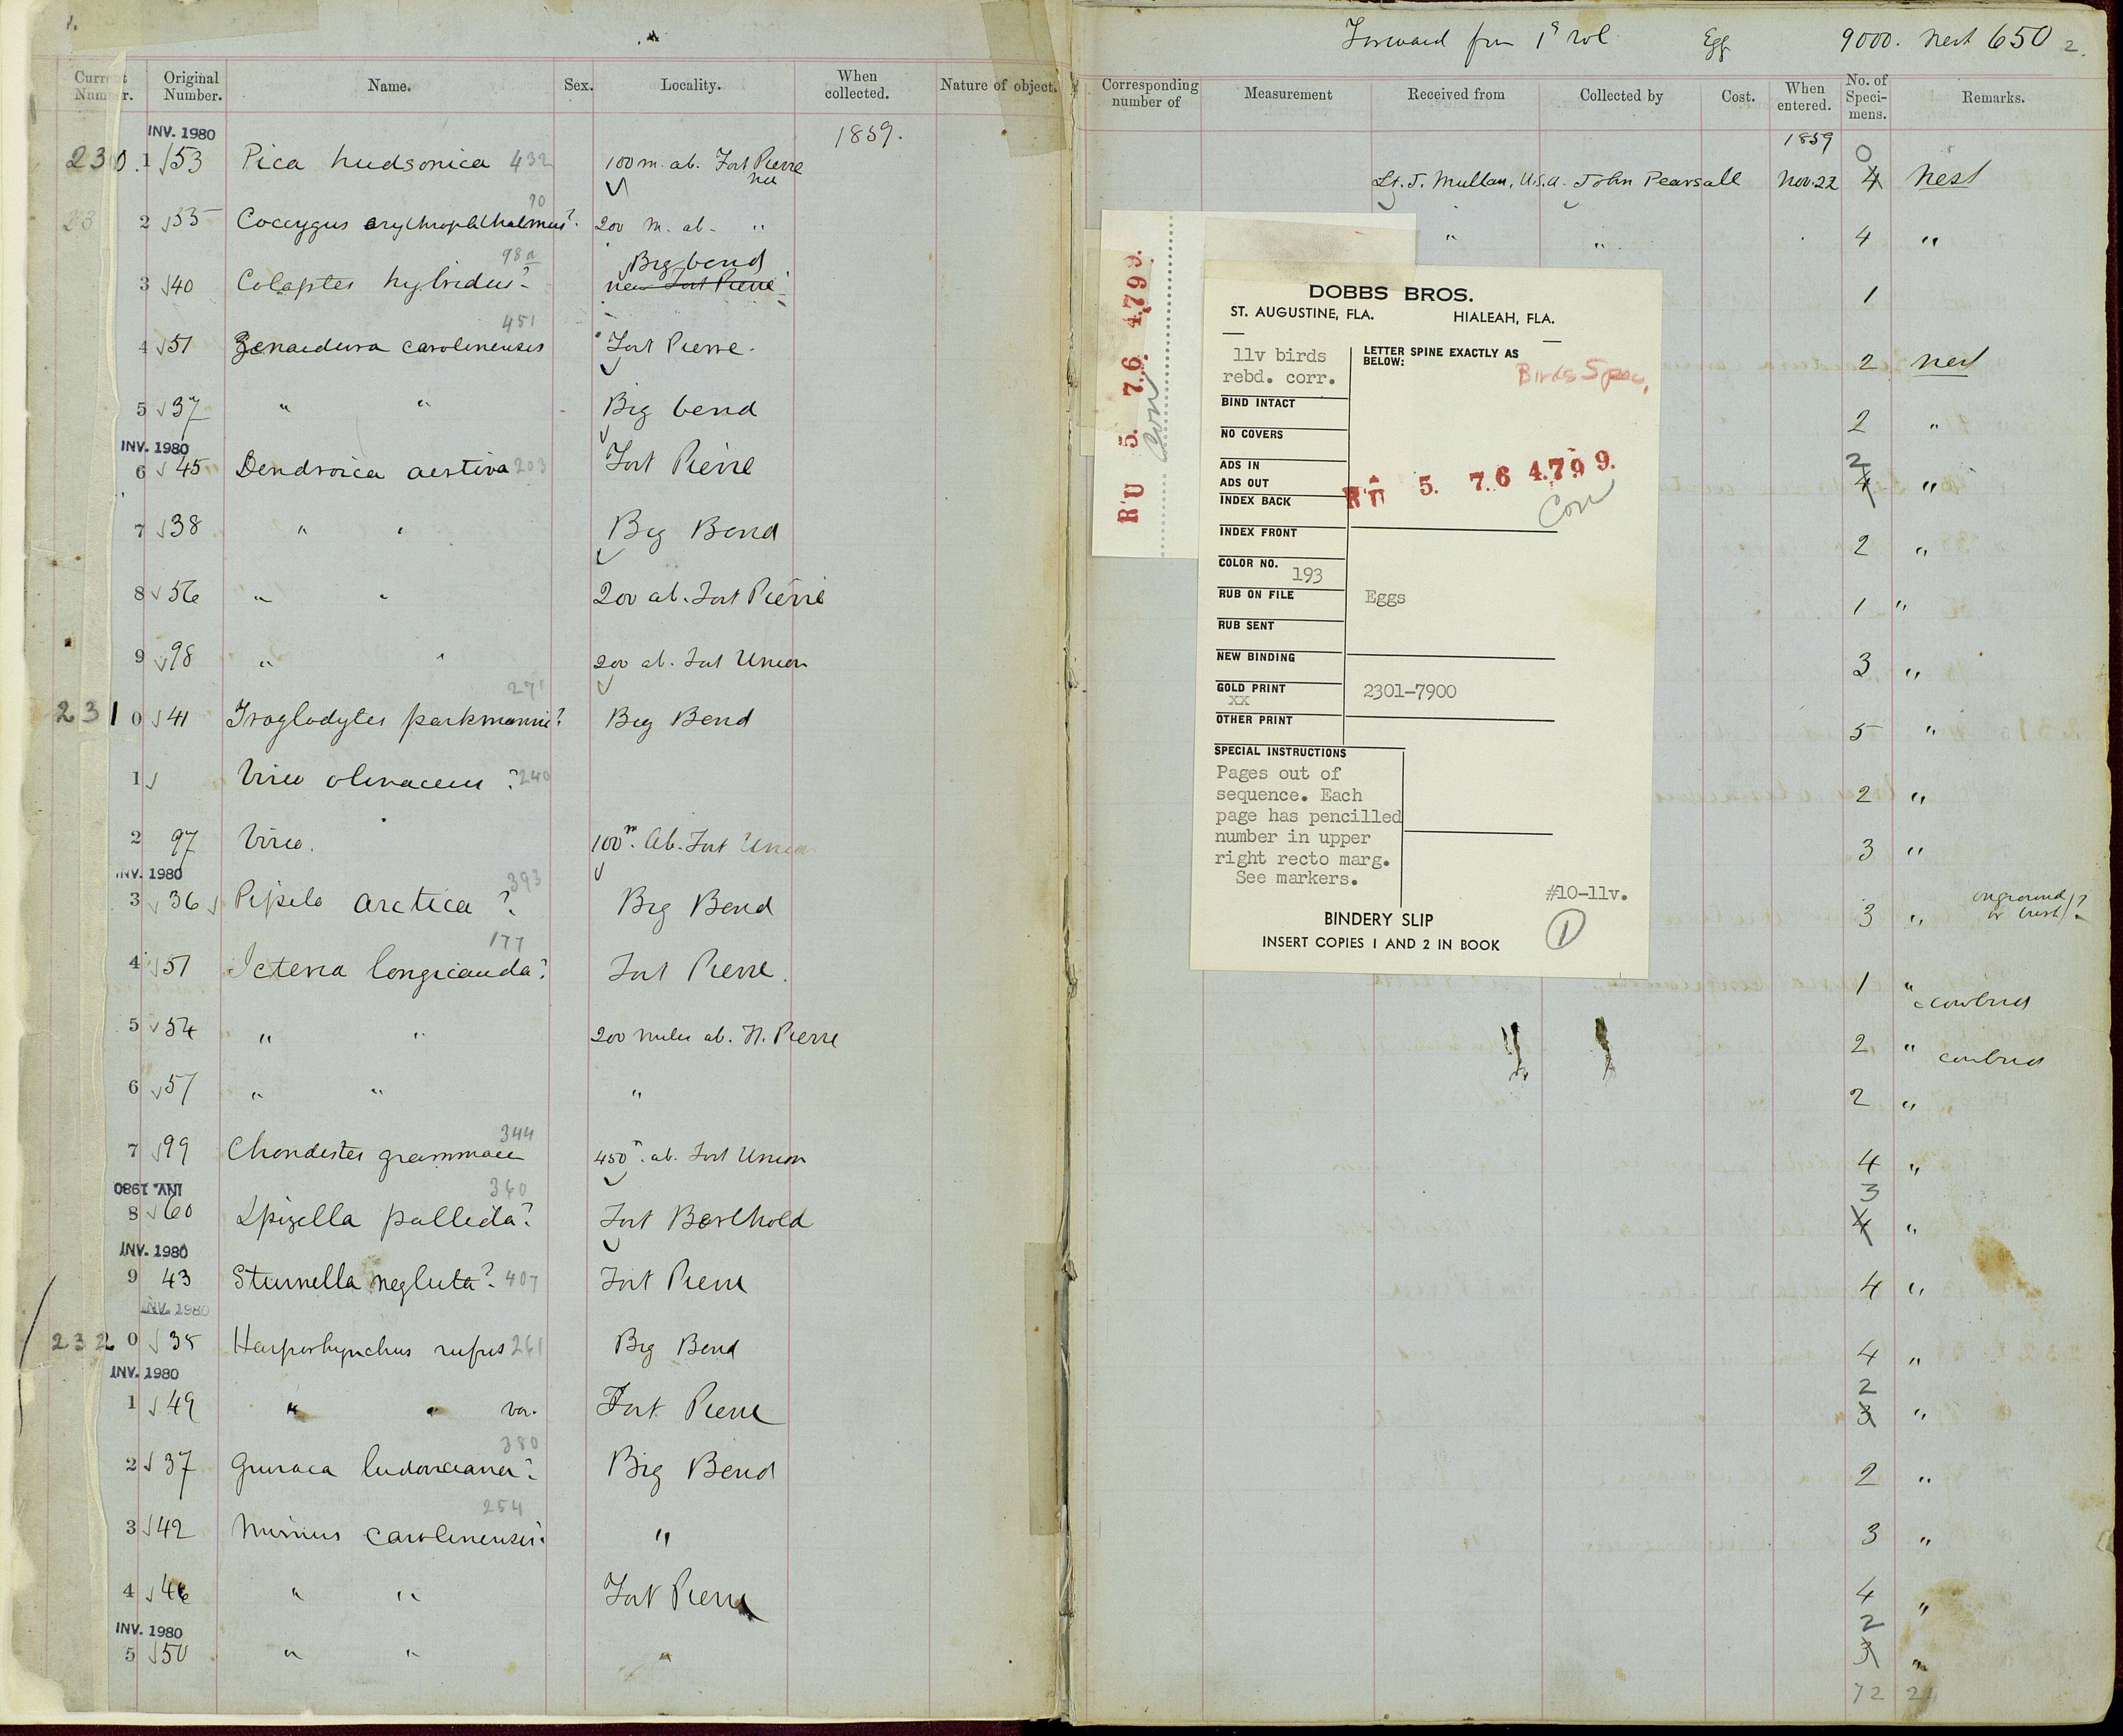 1.
Forward from 1st vol. Egg 9000. Nest 650 2.
Current Number. Original Number. Name. Sex. Locality. When collected. Nature of object.
Corresponding number of Measurement Received from Collected by Cost. When entered. No. of Specimens. Remarks.
INV. 1980 1859. 1859
230.1 53 Pica hudsonica 432 100 m. ab. Fort Pierre Lt. J. Mullan, U.S.A. John Pearsall Nov. 22 0 4 Nest
2 55 Coccygus erythrophthalmus? 70 200 m. ab. " " " 4 "
3 40 Colaptes hybridus? 98a Big bend near Fort Pierre 1
4 51 Zenaidura carolinensis 451 Fort Pierre. 2 nest
5 37 " " Big bend 2 "
INV. 1980
6 45 Dendroica aestiva 203 Fort Pierre 2 4 "
7 38 " " Big Bend 2 "
8 56 " " 200 ab. Fort Pierre 1 "
9 98 " " 200 ab. Fort Union 3 "
231 0 41 Troglodytes parkmannii? 271 Big Bend 5 "
1 Vireo olivaceus ? 240 2 "
2 97 Vireo. 100 m. ab. Fort Union 3 "
INV. 1980
3 36 Pipilo arctica ? 393 Big Bend 3 " on ground or bush/?
4 51 Icteria longicauda? 177 Fort Pierre. 1 " cowbird
5 54 " " 200 miles ab. Ft. Pierre 2 " cowbird
6 57 " " " 2 "
7 99 Chondestes grammaca 344 450 m. ab. Fort Union 4 "
INV. 1980
8 60 Spizella pallida? 360 Fort Berthold 3 4 "
INV. 1980
9 43 Sturnella neglecta? 407 Fort Pierre 4 "
INV. 1980
232 0 35 Harporhynchus rufus 261 Big Bend 4 "
INV. 1980
1 49 " " var. Fort Pierre 2 3 "
2 37 Guiraca ludoviciana? 380 Big Bend 2 "
3 42 Mimus carolinensis 254 " 3 "
4 46 " " Fort Pierre 4 "
INV. 1980
5 50 " " " 2 3 "
72
RU 5. 7.6. 4.799.
Con
DOBBS BROS.
ST. AUGUSTINE, FLA. HIALEAH, FLA.
11v birds
rebd. corr.
LETTER SPINE EXACTLY AS
BELOW:
Birds Spec.
BIND INTACT
NO COVERS
ADS IN
ADS OUT
INDEX BACK
RU 5. 7.6 4.799.
Con
INDEX FRONT
COLOR NO. 193
RUB ON FILE Eggs
RUB SENT
NEW BINDING
GOLD PRINT 2301-7900
XX
OTHER PRINT
SPECIAL INSTRUCTIONS
Pages out of
sequence. Each
page has pencilled
number in upper
right recto marg.
See markers.
#10-11v.
BINDERY SLIP
INSERT COPIES 1 AND 2 IN BOOK
1